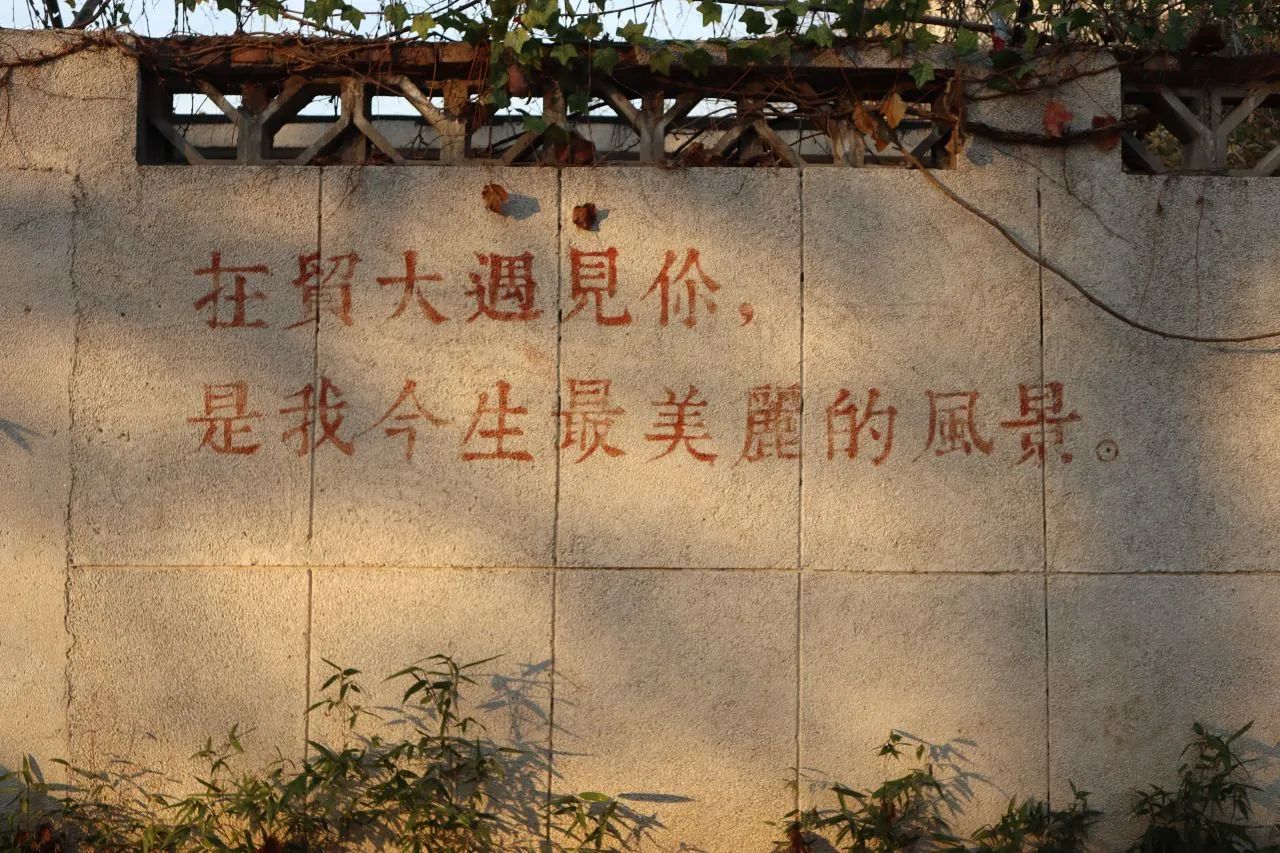 在貿大遇見你，
是我今生最美麗的風景。